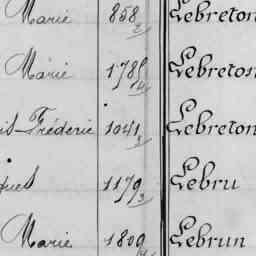 Marie 858/2 Lebreton
Marie 1785/4 Lebreton
is-Fréderic 1041/3 Lebreton
ques 1179/3 Lebru
Marie 1809/4 Lebrun